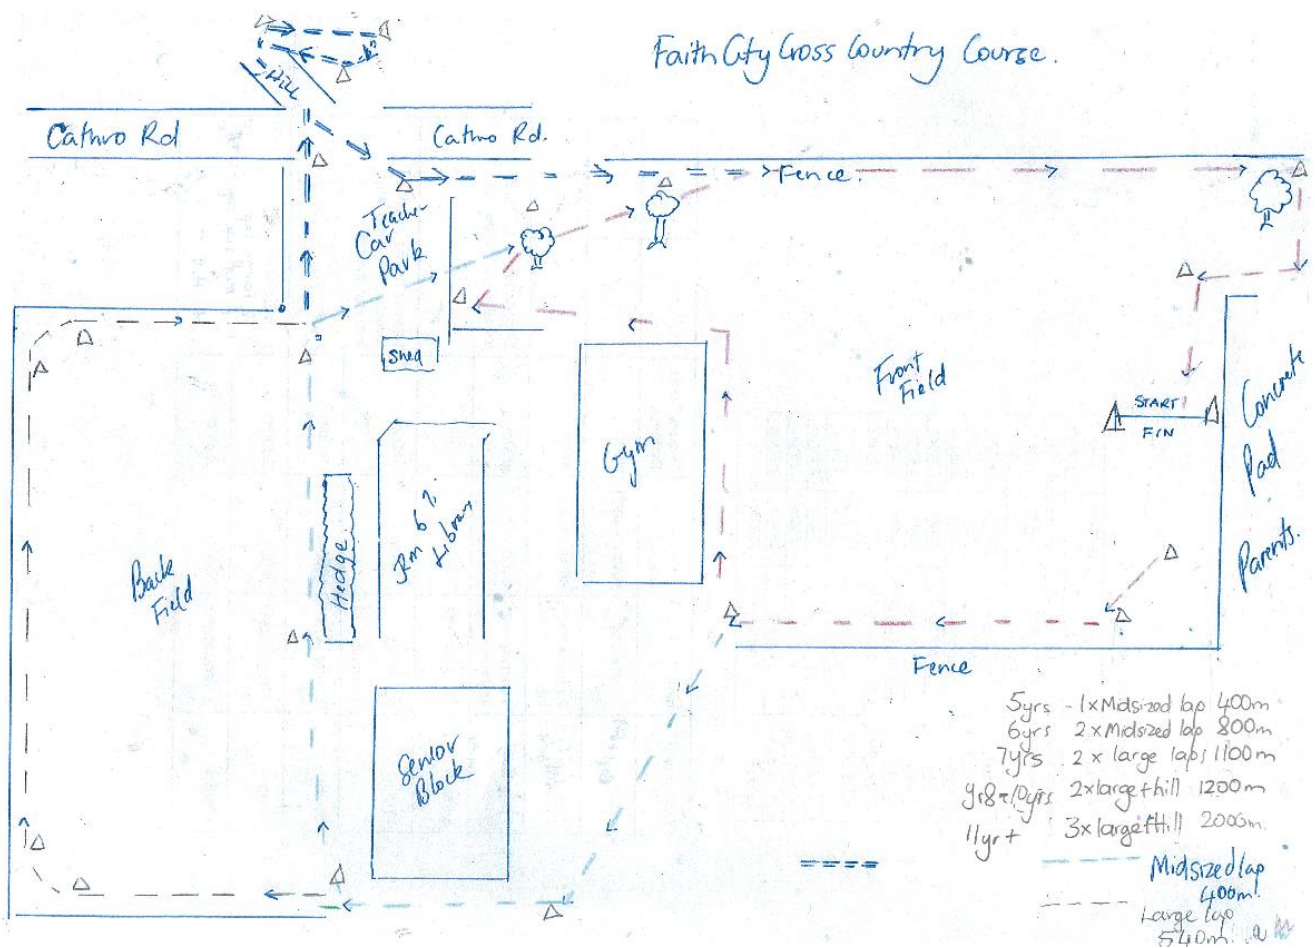 Faith City Cross Country Course.
Hill
Cathro Rd
Cathro Rd.
Fence.
Teacher
Car
Park
Shed
Front
Field
START
FIN
Concrete
Pad
Parents.
Gym
Rm 6 7
Library
Hedge
Back
Field
Fence
Senior
Block
5yrs - 1x Midsized lap 400m
6yrs 2x Midsized lap 800m
7yrs 2 x large laps 1100m
yr8-10yrs 2xlarge+hill 1200m
11yr+ 3xlarge+Hill 2000m.
Midsized lap
400m.
Large lap
540m